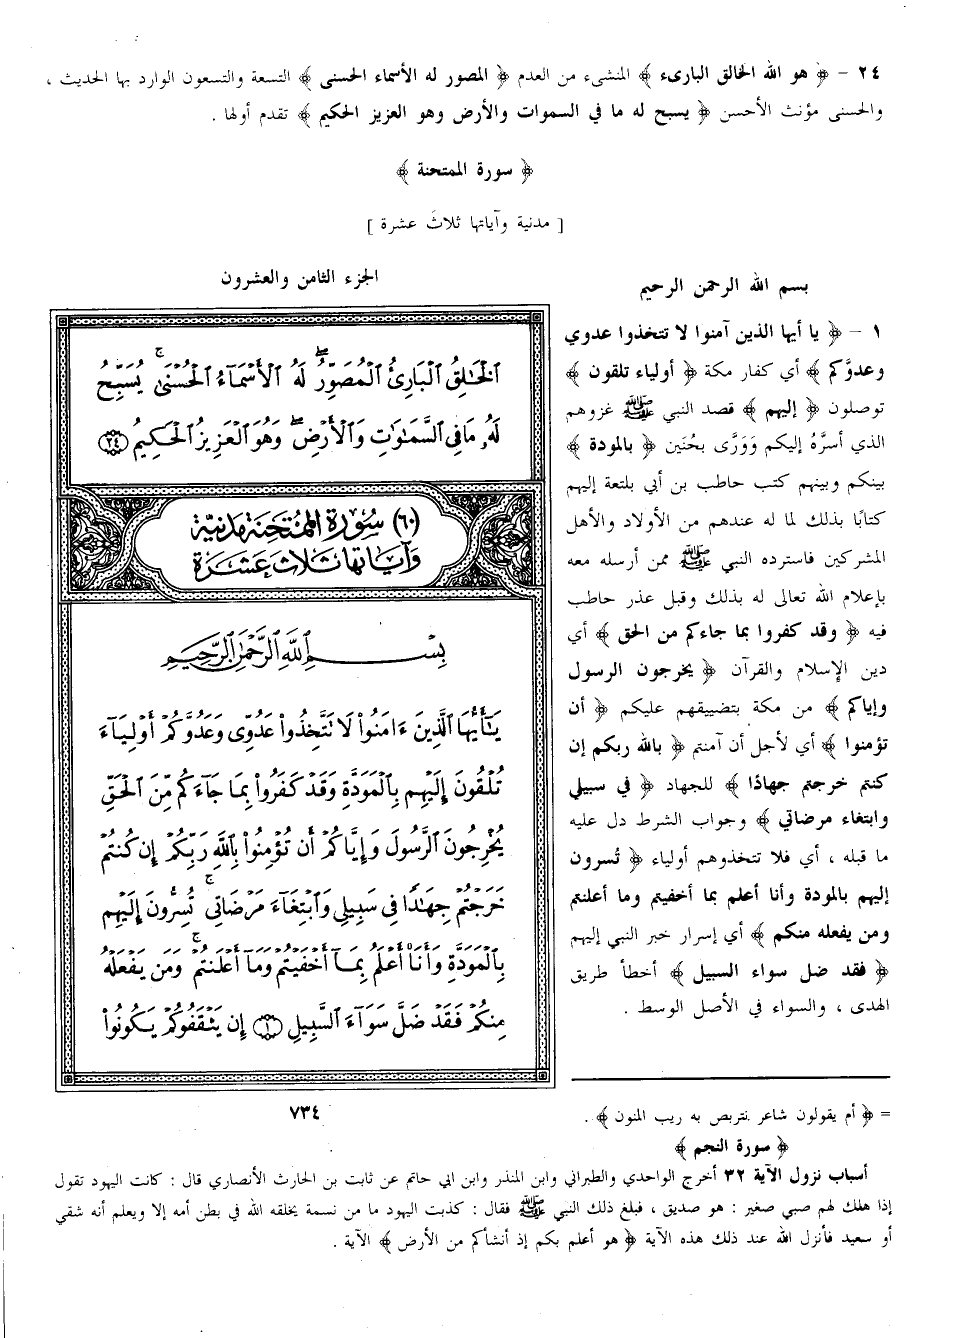 ٢٤ – ﴿ هو الله الخالق البارىء ﴾ المنشىء من العدم ﴿ المصور له الأسماء الحسنى ﴾ التسعة والتسعون الوارد بها الحديث ،
والحسنى مؤنث الأحسن ﴿ يسبح له ما في السموات والأرض وهو العزيز الحكيم ﴾ تقدم أولها .
﴿ سورة الممتحنة ﴾
[ مدنية وآياتها ثلاثَ عشرة ]
بسم الله الرحمن الرحيم
١ – ﴿ يا أيها الذين آمنوا لا تتخذوا عدوي
وعدوَّكم ﴾ أي كفار مكة ﴿ أولياء تلقون ﴾
توصلون ﴿ إليهم ﴾ قصد النبي ﷺ غزوهم
الذي أسرَّهُ إليكم وَوَرَّى بحُنَين ﴿ بالمودة ﴾
بينكم وبينهم كتب حاطب بن أبي بلتعة إليهم
كتابًا بذلك لما له عندهم من الأولاد والأهل
المشركين فاسترده النبي ﷺ ممن أرسله معه
بإعلام الله تعالى له بذلك وقبل عذر حاطب
فيه ﴿ وقد كفروا بما جاءكم من الحق ﴾ أي
دين الإسلام والقرآن ﴿ يخرجون الرسول
وإياكم ﴾ من مكة بتضييقهم عليكم ﴿ أن
تؤمنوا ﴾ أي لأجل أن آمنتم ﴿ بالله ربكم إن
كنتم خرجتم جهادًا ﴾ للجهاد ﴿ في سبيلي
وابتغاء مرضاتي ﴾ وجواب الشرط دل عليه
ما قبله ، أي فلا تتخذوهم أولياء ﴿ تُسرون
إليهم بالمودة وأنا أعلم بما أخفيتم وما أعلنتم
ومن يفعله منكم ﴾ أي إسرار خبر النبي إليهم
﴿ فقد ضل سواء السبيل ﴾ أخطأ طريق
الهدى ، والسواء في الأصل الوسط .
الجزء الثامن والعشرون
ٱلْخَٰلِقُ ٱلْبَارِئُ ٱلْمُصَوِّرُۖ لَهُ ٱلْأَسْمَآءُ ٱلْحُسْنَىٰۚ يُسَبِّحُ
لَهُۥ مَا فِى ٱلسَّمَٰوَٰتِ وَٱلْأَرْضِۖ وَهُوَ ٱلْعَزِيزُ ٱلْحَكِيمُ ٢٤
(٦٠) سُورَةُ المُمْتَحَنَةِ مَدَنِيَّة
وَآيَاتُهَا ثَلَاثَ عَشَرَةَ
بِسْمِ ٱللَّهِ ٱلرَّحْمَٰنِ ٱلرَّحِيمِ
يَٰٓأَيُّهَا ٱلَّذِينَ ءَامَنُوا۟ لَا تَتَّخِذُوا۟ عَدُوِّى وَعَدُوَّكُمْ أَوْلِيَآءَ
تُلْقُونَ إِلَيْهِم بِٱلْمَوَدَّةِ وَقَدْ كَفَرُوا۟ بِمَا جَآءَكُم مِّنَ ٱلْحَقِّ
يُخْرِجُونَ ٱلرَّسُولَ وَإِيَّاكُمْ أَن تُؤْمِنُوا۟ بِٱللَّهِ رَبِّكُمْ إِن كُنتُمْ
خَرَجْتُمْ جِهَٰدًا فِى سَبِيلِى وَٱبْتِغَآءَ مَرْضَاتِىۚ تُسِرُّونَ إِلَيْهِم
بِٱلْمَوَدَّةِ وَأَنَا۠ أَعْلَمُ بِمَآ أَخْفَيْتُمْ وَمَآ أَعْلَنتُمْۚ وَمَن يَفْعَلْهُ
مِنكُمْ فَقَدْ ضَلَّ سَوَآءَ ٱلسَّبِيلِ ١ إِن يَثْقَفُوكُمْ يَكُونُوا۟
٧٣٤
= ﴿ أم يقولون شاعر نتربص به ريب المنون ﴾ .
﴿ سورة النجم ﴾
أسباب نزول الآية ٣٢ أخرج الواحدي والطبراني وابن المنذر وابن ابي حاتم عن ثابت بن الحارث الأنصاري قال : كانت اليهود تقول
إذا هلك لهم صبي صغير : هو صديق ، فبلغ ذلك النبي ﷺ فقال : كذبت اليهود ما من نسمة يخلقه الله في بطن أمه إلا ويعلم أنه شقي
أو سعيد فأنزل الله عند ذلك هذه الآية ﴿ هو أعلم بكم إذ أنشأكم من الأرض ﴾ الآية .